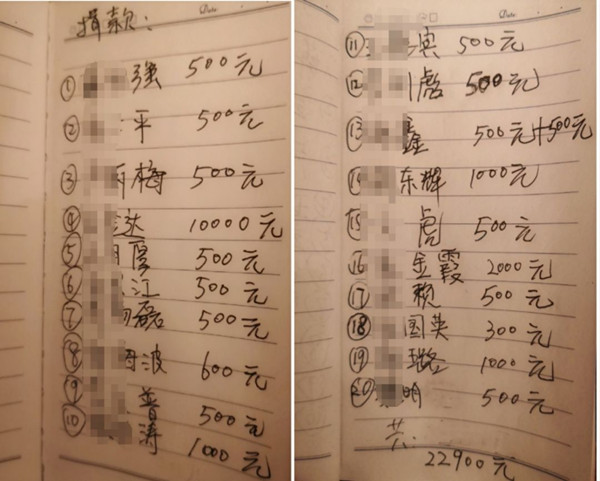 捐款:
① 强 500元
② 平 500元
③ 梅 500元
④ 达 10000元
⑤ 厚 500元
⑥ 江 500元
⑦ 磊 500元
⑧ 波 600元
⑨ 普 500元
⑩ 涛 1000元
Date
⑪ 滨 500元
⑫ 彪 500元
⑬ 鑫 500元+500元
⑭ 东辉 1000元
⑮ 虎 500元
⑯ 金霞 2000元
⑰ 颖 500元
⑱ 国英 300元
⑲ 璐 1000元
⑳ 明 500元
共:
22900元